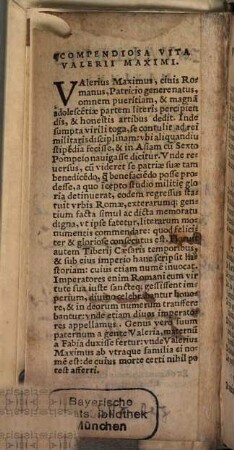 COMPENDIOSA VITA
VALERII MAXIMI.
VAlerius Maximus, ciuis Ro-
manus, Patricio genere natus,
omnem pueritiam, & magnã
adolescẽtiæ partem literis percipien
dis, & honestis artibus dedit. Inde
sumpta virili toga, se contulit ad rei
militaris disciplinam: vbi aliquandiu
stipẽdia fecisset, & in Asiam cũ Sexto
Pompeio nauigasse dicitur. Vnde re-
uersus, cũ videret se patriæ suæ tam
benedicẽdo, q̃ benefaciẽdo posse pro-
desse, a quo icepto studio militię glo
ria detinuerat, eodem regressus sta-
tuit vrbis Romæ, exterarumq; gen-
tium facta simul ac dicta memoratu
digna, vt ipse fatetur, literarum mo-
numentis commendare: quod felici-
ter & gloriose consecutus est. Floruit
autem Tiberij Cæsaris temporibus,
& sub eius imperio hanc scripsit hi-
storiam: cuius etiam numẽ inuocat.
Imperatores enim Romani cum vir
tute sua iuste sancteq; gessissent im-
perium, diuino celebrabantur hono
re, & in deorum numerum transfere
bantur: vnde etiam diuos imperato-
res appellamus. Genus vero suum
paternum a gente Valeria, maternũ
a Fabia duxisse fertur: vnde Valerius
Maximus ab vtraque familia ei no-
mẽ est: de cuius morte certi nihil po
test afferri.
Bayerische
Staatsbibliothek
München